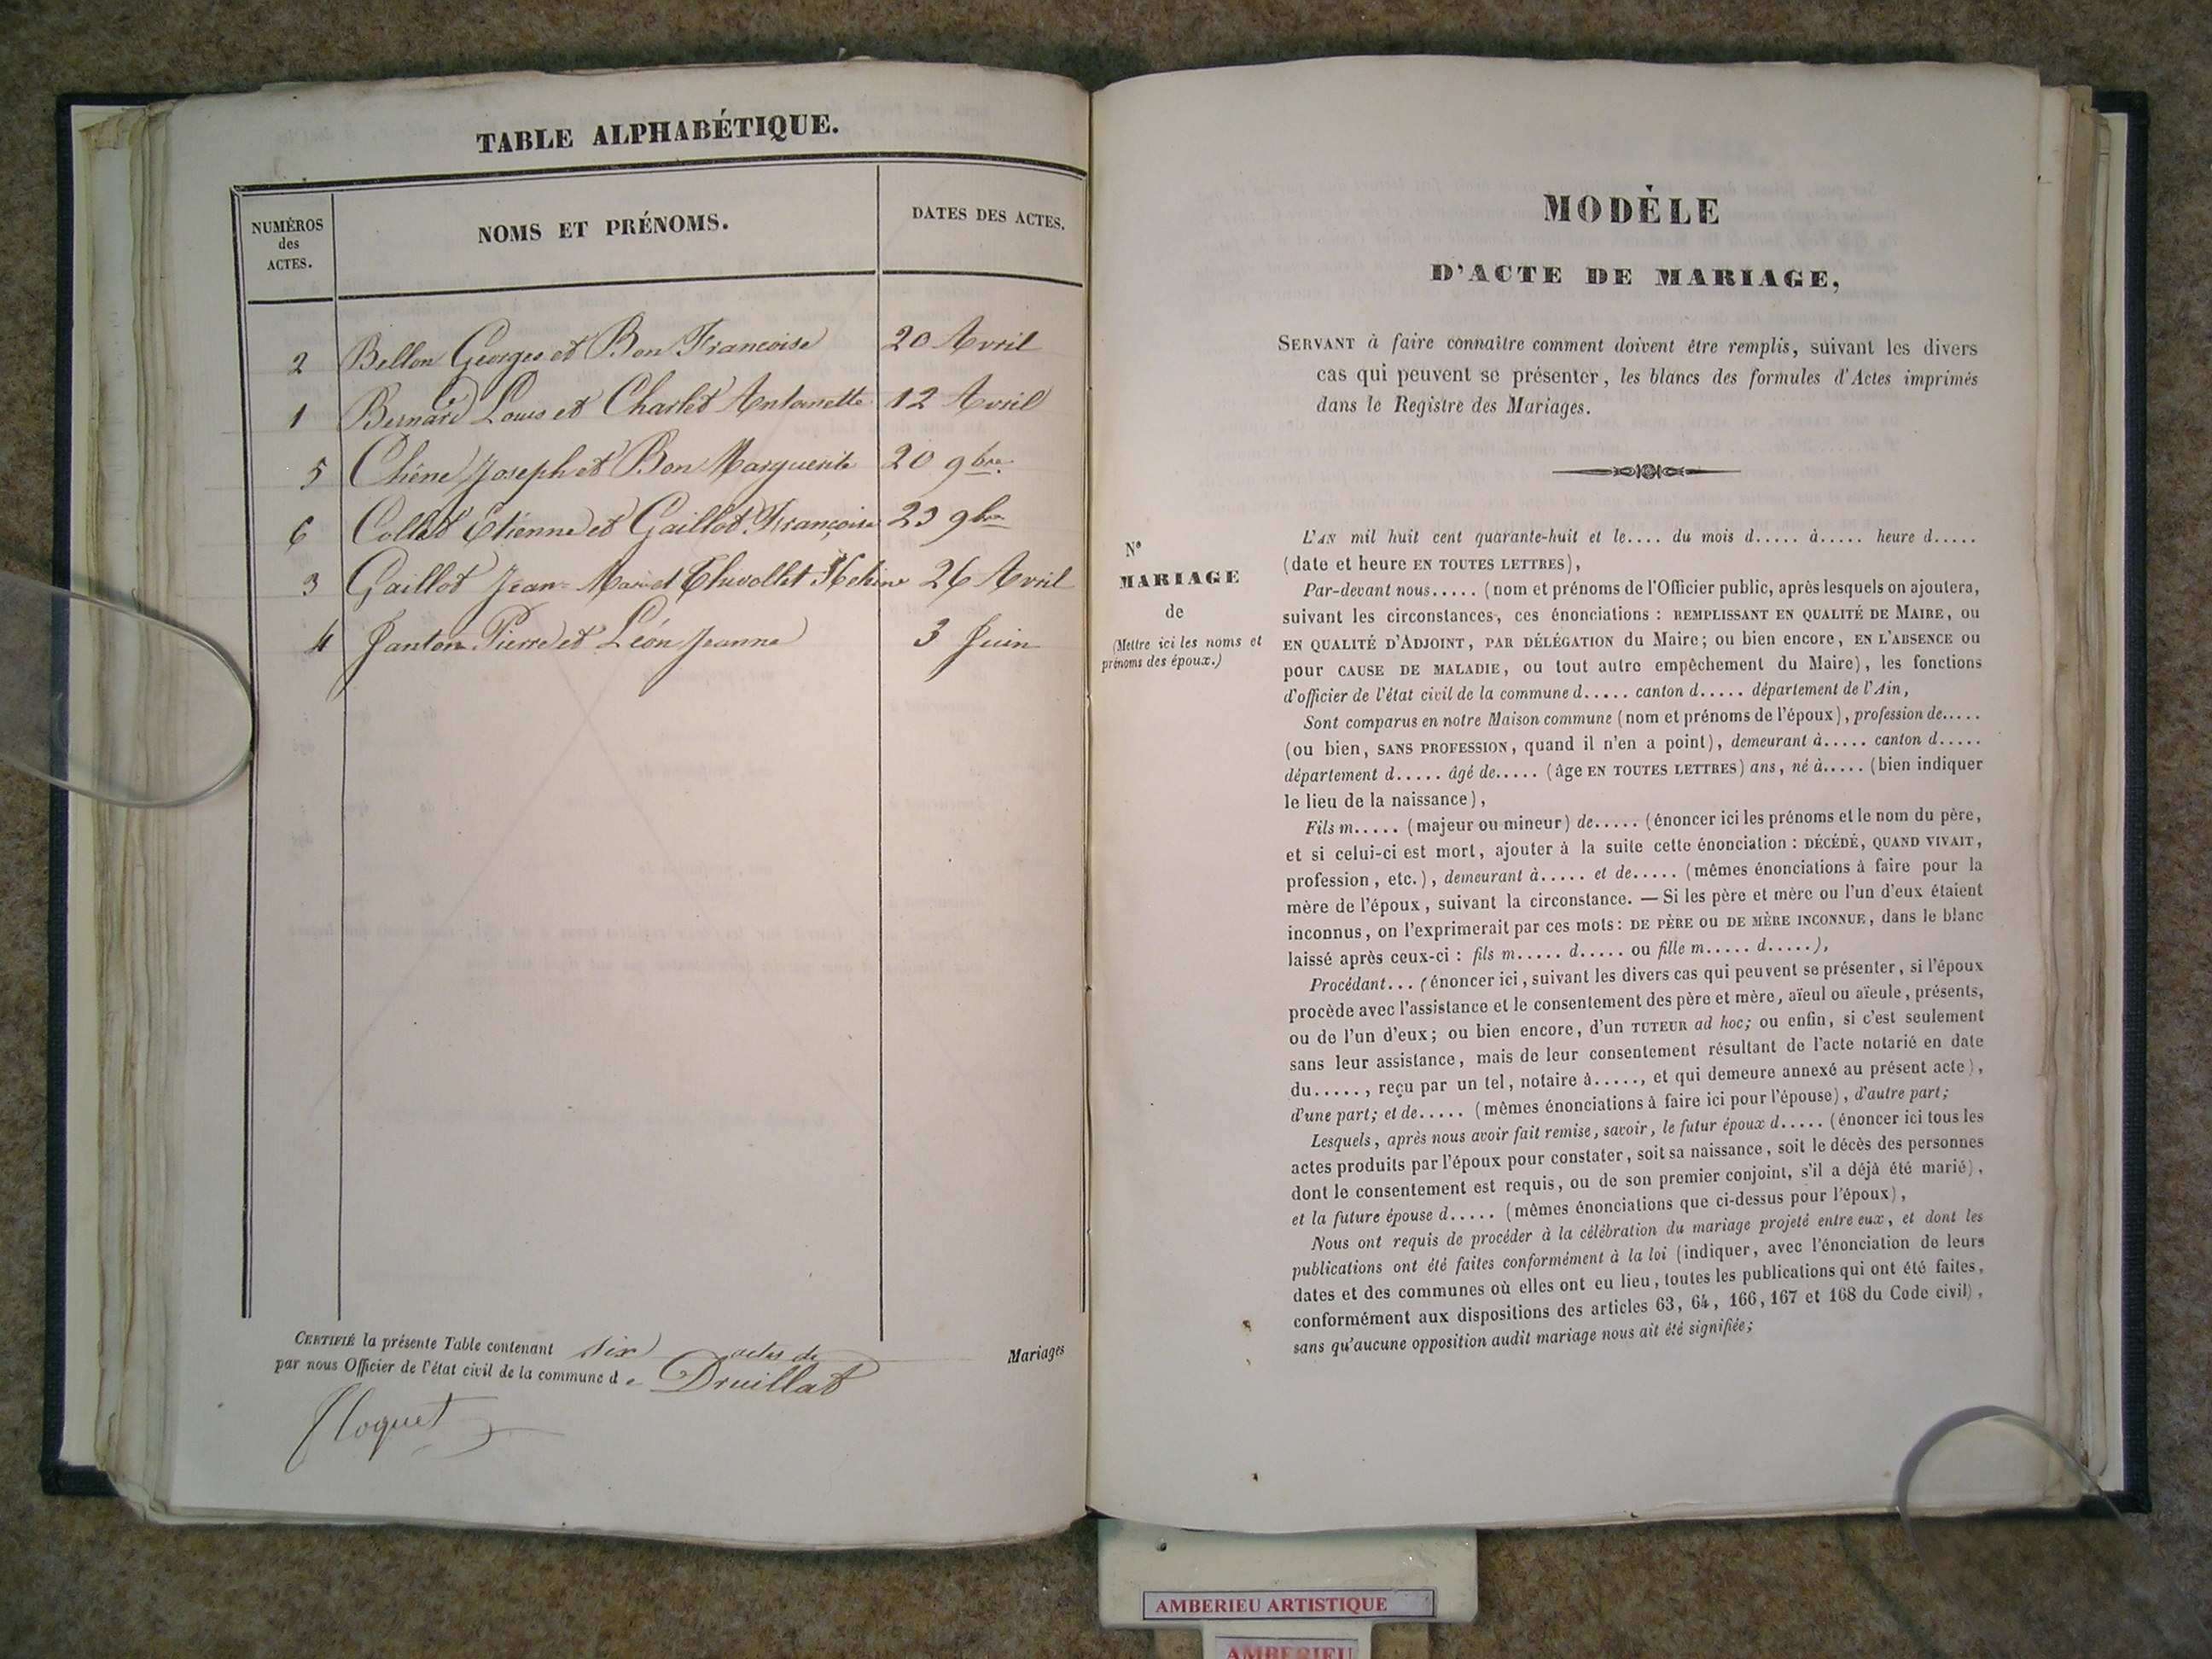 TABLE ALPHABÉTIQUE.
NUMÉROS
des
ACTES.
NOMS ET PRÉNOMS.
DATES DES ACTES.
2 Bellon Georges et Bon Francoise 20 Avril
1 Bernard Louis et Charlet Antoinette 12 Avril
5 Chêne Joseph et Bon Marguerite 20 9bre
6 Collet Etienne et Gaillot Françoise 23 9bre
3 Gaillot Jean-Marie et Chevollet 26 Avril
4 Janton Pierre et Léon Jeanne 3 Juin
CERTIFIÉ la présente Table contenant six actes de Mariages
par nous Officier de l'état civil de la commune d e Druillat
Cloquet
MODÈLE
D'ACTE DE MARIAGE,
SERVANT à faire connaître comment doivent être remplis, suivant les divers
cas qui peuvent se présenter, les blancs des formules d'Actes imprimés
dans le Registre des Mariages.
N°
MARIAGE
de
(Mettre ici les noms et
prénoms des époux.)
L'AN mil huit cent quarante-huit et le.... du mois d..... à..... heure d.....
(date et heure EN TOUTES LETTRES),
Par-devant nous..... (nom et prénoms de l'Officier public, après lesquels on ajoutera,
suivant les circonstances, ces énonciations : REMPLISSANT EN QUALITÉ DE MAIRE, ou
EN QUALITÉ D'ADJOINT, PAR DÉLÉGATION du Maire; ou bien encore, EN L'ABSENCE ou
pour CAUSE DE MALADIE, ou tout autre empêchement du Maire), les fonctions
d'officier de l'état civil de la commune d..... canton d..... département de l'Ain,
Sont comparus en notre Maison commune (nom et prénoms de l'époux), profession de.....
(ou bien, SANS PROFESSION, quand il n'en a point), demeurant à..... canton d.....
département d..... âgé de..... (âge EN TOUTES LETTRES) ans, né à..... (bien indiquer
le lieu de la naissance),
Fils m..... (majeur ou mineur) de..... (énoncer ici les prénoms et le nom du père,
et si celui-ci est mort, ajouter à la suite cette énonciation : DÉCÉDÉ, QUAND VIVAIT,
profession, etc.), demeurant à..... et de..... (mêmes énonciations à faire pour la
mère de l'époux, suivant la circonstance. — Si les père et mère ou l'un d'eux étaient
inconnus, on l'exprimerait par ces mots : DE PÈRE OU DE MÈRE INCONNUE, dans le blanc
laissé après ceux-ci : fils m..... d..... ou fille m..... d.....),
Procédant... (énoncer ici, suivant les divers cas qui peuvent se présenter, si l'époux
procède avec l'assistance et le consentement des père et mère, aïeul ou aïeule, présents,
ou de l'un d'eux; ou bien encore, d'un TUTEUR ad hoc; ou enfin, si c'est seulement
sans leur assistance, mais de leur consentement résultant de l'acte notarié en date
du....., reçu par un tel, notaire à....., et qui demeure annexé au présent acte),
d'une part; et de..... (mêmes énonciations à faire ici pour l'épouse), d'autre part;
Lesquels, après nous avoir fait remise, savoir, le futur époux d..... (énoncer ici tous les
actes produits par l'époux pour constater, soit sa naissance, soit le décès des personnes
dont le consentement est requis, ou de son premier conjoint, s'il a déjà été marié),
et la future épouse d..... (mêmes énonciations que ci-dessus pour l'époux),
Nous ont requis de procéder à la célébration du mariage projeté entre eux, et dont les
publications ont été faites conformément à la loi (indiquer, avec l'énonciation de leurs
dates et des communes où elles ont eu lieu, toutes les publications qui ont été faites,
conformément aux dispositions des articles 63, 64, 166, 167 et 168 du Code civil),
sans qu'aucune opposition audit mariage nous ait été signifiée;
AMBERIEU ARTISTIQUE
AMBERIEU